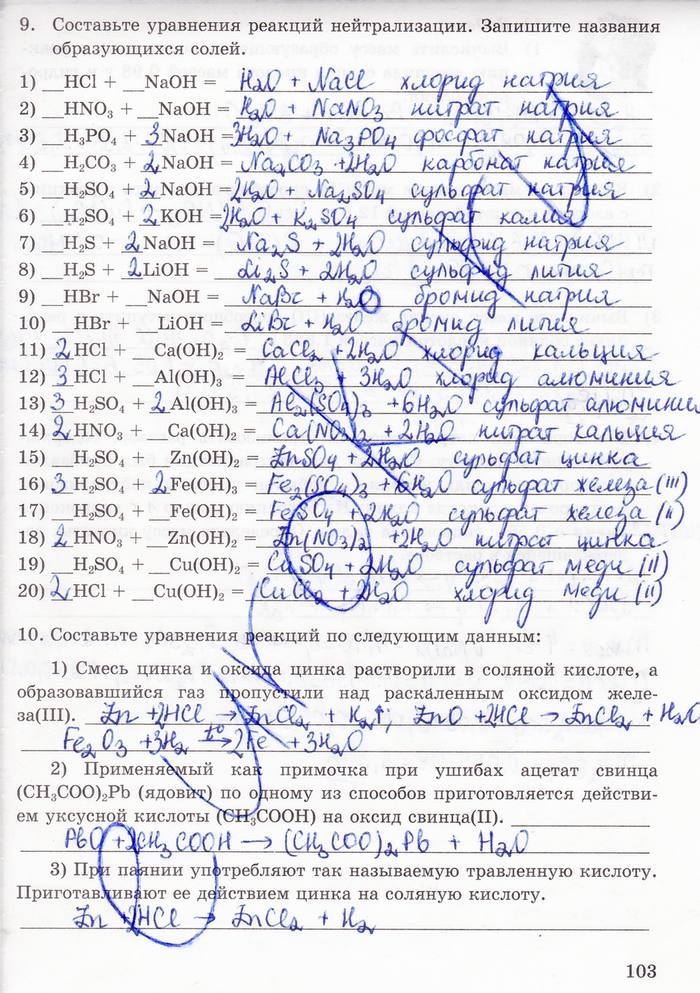 9. Составьте уравнения реакций нейтрализации. Запишите названия
образующихся солей.
1) __HCl + __NaOH = H₂O + NaCl хлорид натрия
2) __HNO₃ + __NaOH = H₂O + NaNO₃ нитрат натрия
3) __H₃PO₄ + 3NaOH = 3H₂O + Na₃PO₄ фосфат натрия
4) __H₂CO₃ + 2NaOH = Na₂CO₃ + 2H₂O карбонат натрия
5) __H₂SO₄ + 2NaOH = 2H₂O + Na₂SO₄ сульфат натрия
6) __H₂SO₄ + 2KOH = 2H₂O + K₂SO₄ сульфат калия
7) __H₂S + 2NaOH = Na₂S + 2H₂O сульфид натрия
8) __H₂S + 2LiOH = Li₂S + 2H₂O сульфид лития
9) __HBr + __NaOH = NaBr + H₂O бромид натрия
10) __HBr + __LiOH = LiBr + H₂O бромид лития
11) 2HCl + __Ca(OH)₂ = CaCl₂ + 2H₂O хлорид кальция
12) 3HCl + __Al(OH)₃ = AlCl₃ + 3H₂O хлорид алюминия
13) 3H₂SO₄ + 2Al(OH)₃ = Al₂(SO₄)₃ + 6H₂O сульфат алюминия
14) 2HNO₃ + __Ca(OH)₂ = Ca(NO₃)₂ + 2H₂O нитрат кальция
15) __H₂SO₄ + __Zn(OH)₂ = ZnSO₄ + 2H₂O сульфат цинка
16) 3H₂SO₄ + 2Fe(OH)₃ = Fe₂(SO₄)₃ + 6H₂O сульфат железа (III)
17) __H₂SO₄ + __Fe(OH)₂ = FeSO₄ + 2H₂O сульфат железа (II)
18) 2HNO₃ + __Zn(OH)₂ = Zn(NO₃)₂ + 2H₂O нитрат цинка
19) __H₂SO₄ + __Cu(OH)₂ = CuSO₄ + 2H₂O сульфат меди (II)
20) 2HCl + __Cu(OH)₂ = CuCl₂ + 2H₂O хлорид меди (II)
10. Составьте уравнения реакций по следующим данным:
1) Смесь цинка и оксида цинка растворили в соляной кислоте, а
образовавшийся газ пропустили над раскаленным оксидом желе-
за(III). Zn + 2HCl → ZnCl₂ + H₂↑; ZnO + 2HCl → ZnCl₂ + H₂O
Fe₂O₃ + 3H₂ t°→ 2Fe + 3H₂O
2) Применяемый как примочка при ушибах ацетат свинца
(CH₃COO)₂Pb (ядовит) по одному из способов приготовляется действи-
ем уксусной кислоты (CH₃COOH) на оксид свинца(II).
PbO + 2CH₃COOH → (CH₃COO)₂Pb + H₂O
3) При паянии употребляют так называемую травленную кислоту.
Приготавливают ее действием цинка на соляную кислоту.
Zn + 2HCl → ZnCl₂ + H₂
103